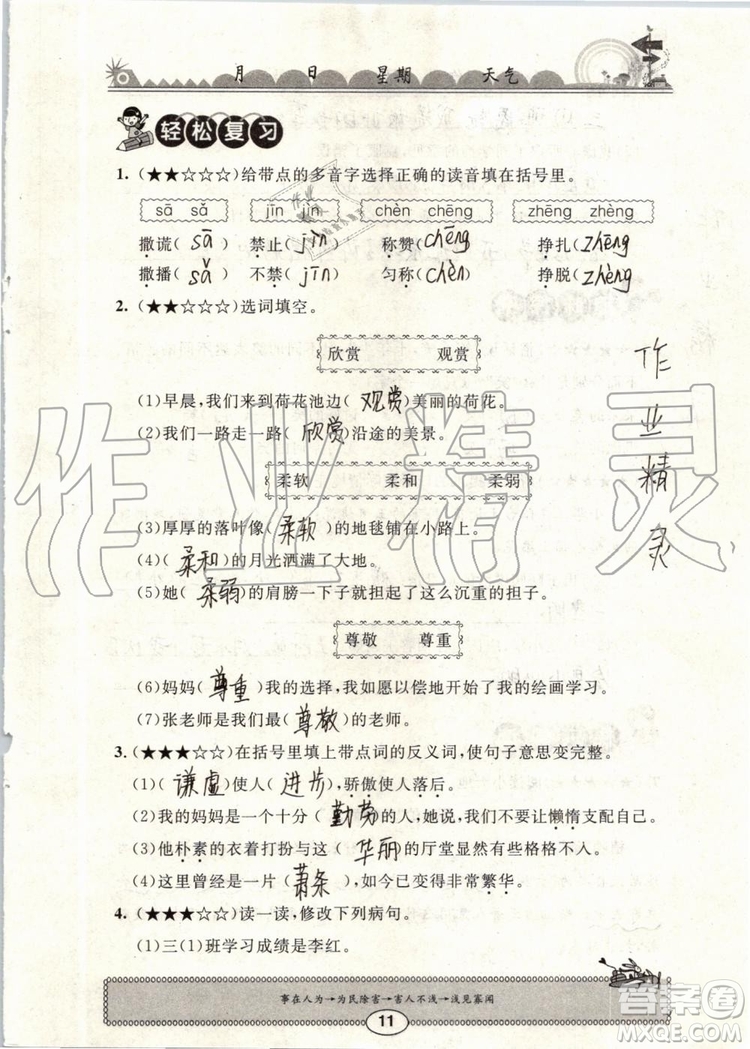 月 日 星期 天气
轻松复习
1. (★★☆☆☆)给带点的多音字选择正确的读音填在括号里。
sā sǎ jīn jìn chèn chēng zhēng zhèng
撒谎( sā ) 禁止( jìn ) 称赞( chēng ) 挣扎( zhēng )
撒播( sǎ ) 不禁( jīn ) 匀称( chèn ) 挣脱( zhèng )
2. (★★☆☆☆)选词填空。
欣赏 观赏
(1)早晨,我们来到荷花池边( 观赏 )美丽的荷花。
(2)我们一路走一路( 欣赏 )沿途的美景。
柔软 柔和 柔弱
(3)厚厚的落叶像( 柔软 )的地毯铺在小路上。
(4)( 柔和 )的月光洒满了大地。
(5)她( 柔弱 )的肩膀一下子就担起了这么沉重的担子。
尊敬 尊重
(6)妈妈( 尊重 )我的选择,我如愿以偿地开始了我的绘画学习。
(7)张老师是我们最( 尊敬 )的老师。
3. (★★★☆☆)在括号里填上带点词的反义词,使句子意思变完整。
(1)( 谦虚 )使人( 进步 ),骄傲使人落后。
(2)我的妈妈是一个十分( 勤劳 )的人,她说,我们不要让懒惰支配自己。
(3)他朴素的衣着打扮与这( 华丽 )的厅堂显然有些格格不入。
(4)这里曾经是一片( 萧条 ),如今已变得非常繁华。
4. (★★★☆☆)读一读,修改下列病句。
(1)三(1)班学习成绩是李红。
事在人为→为民除害→害人不浅→浅见寡闻
11
作业精灵
作业精灵
答案圈